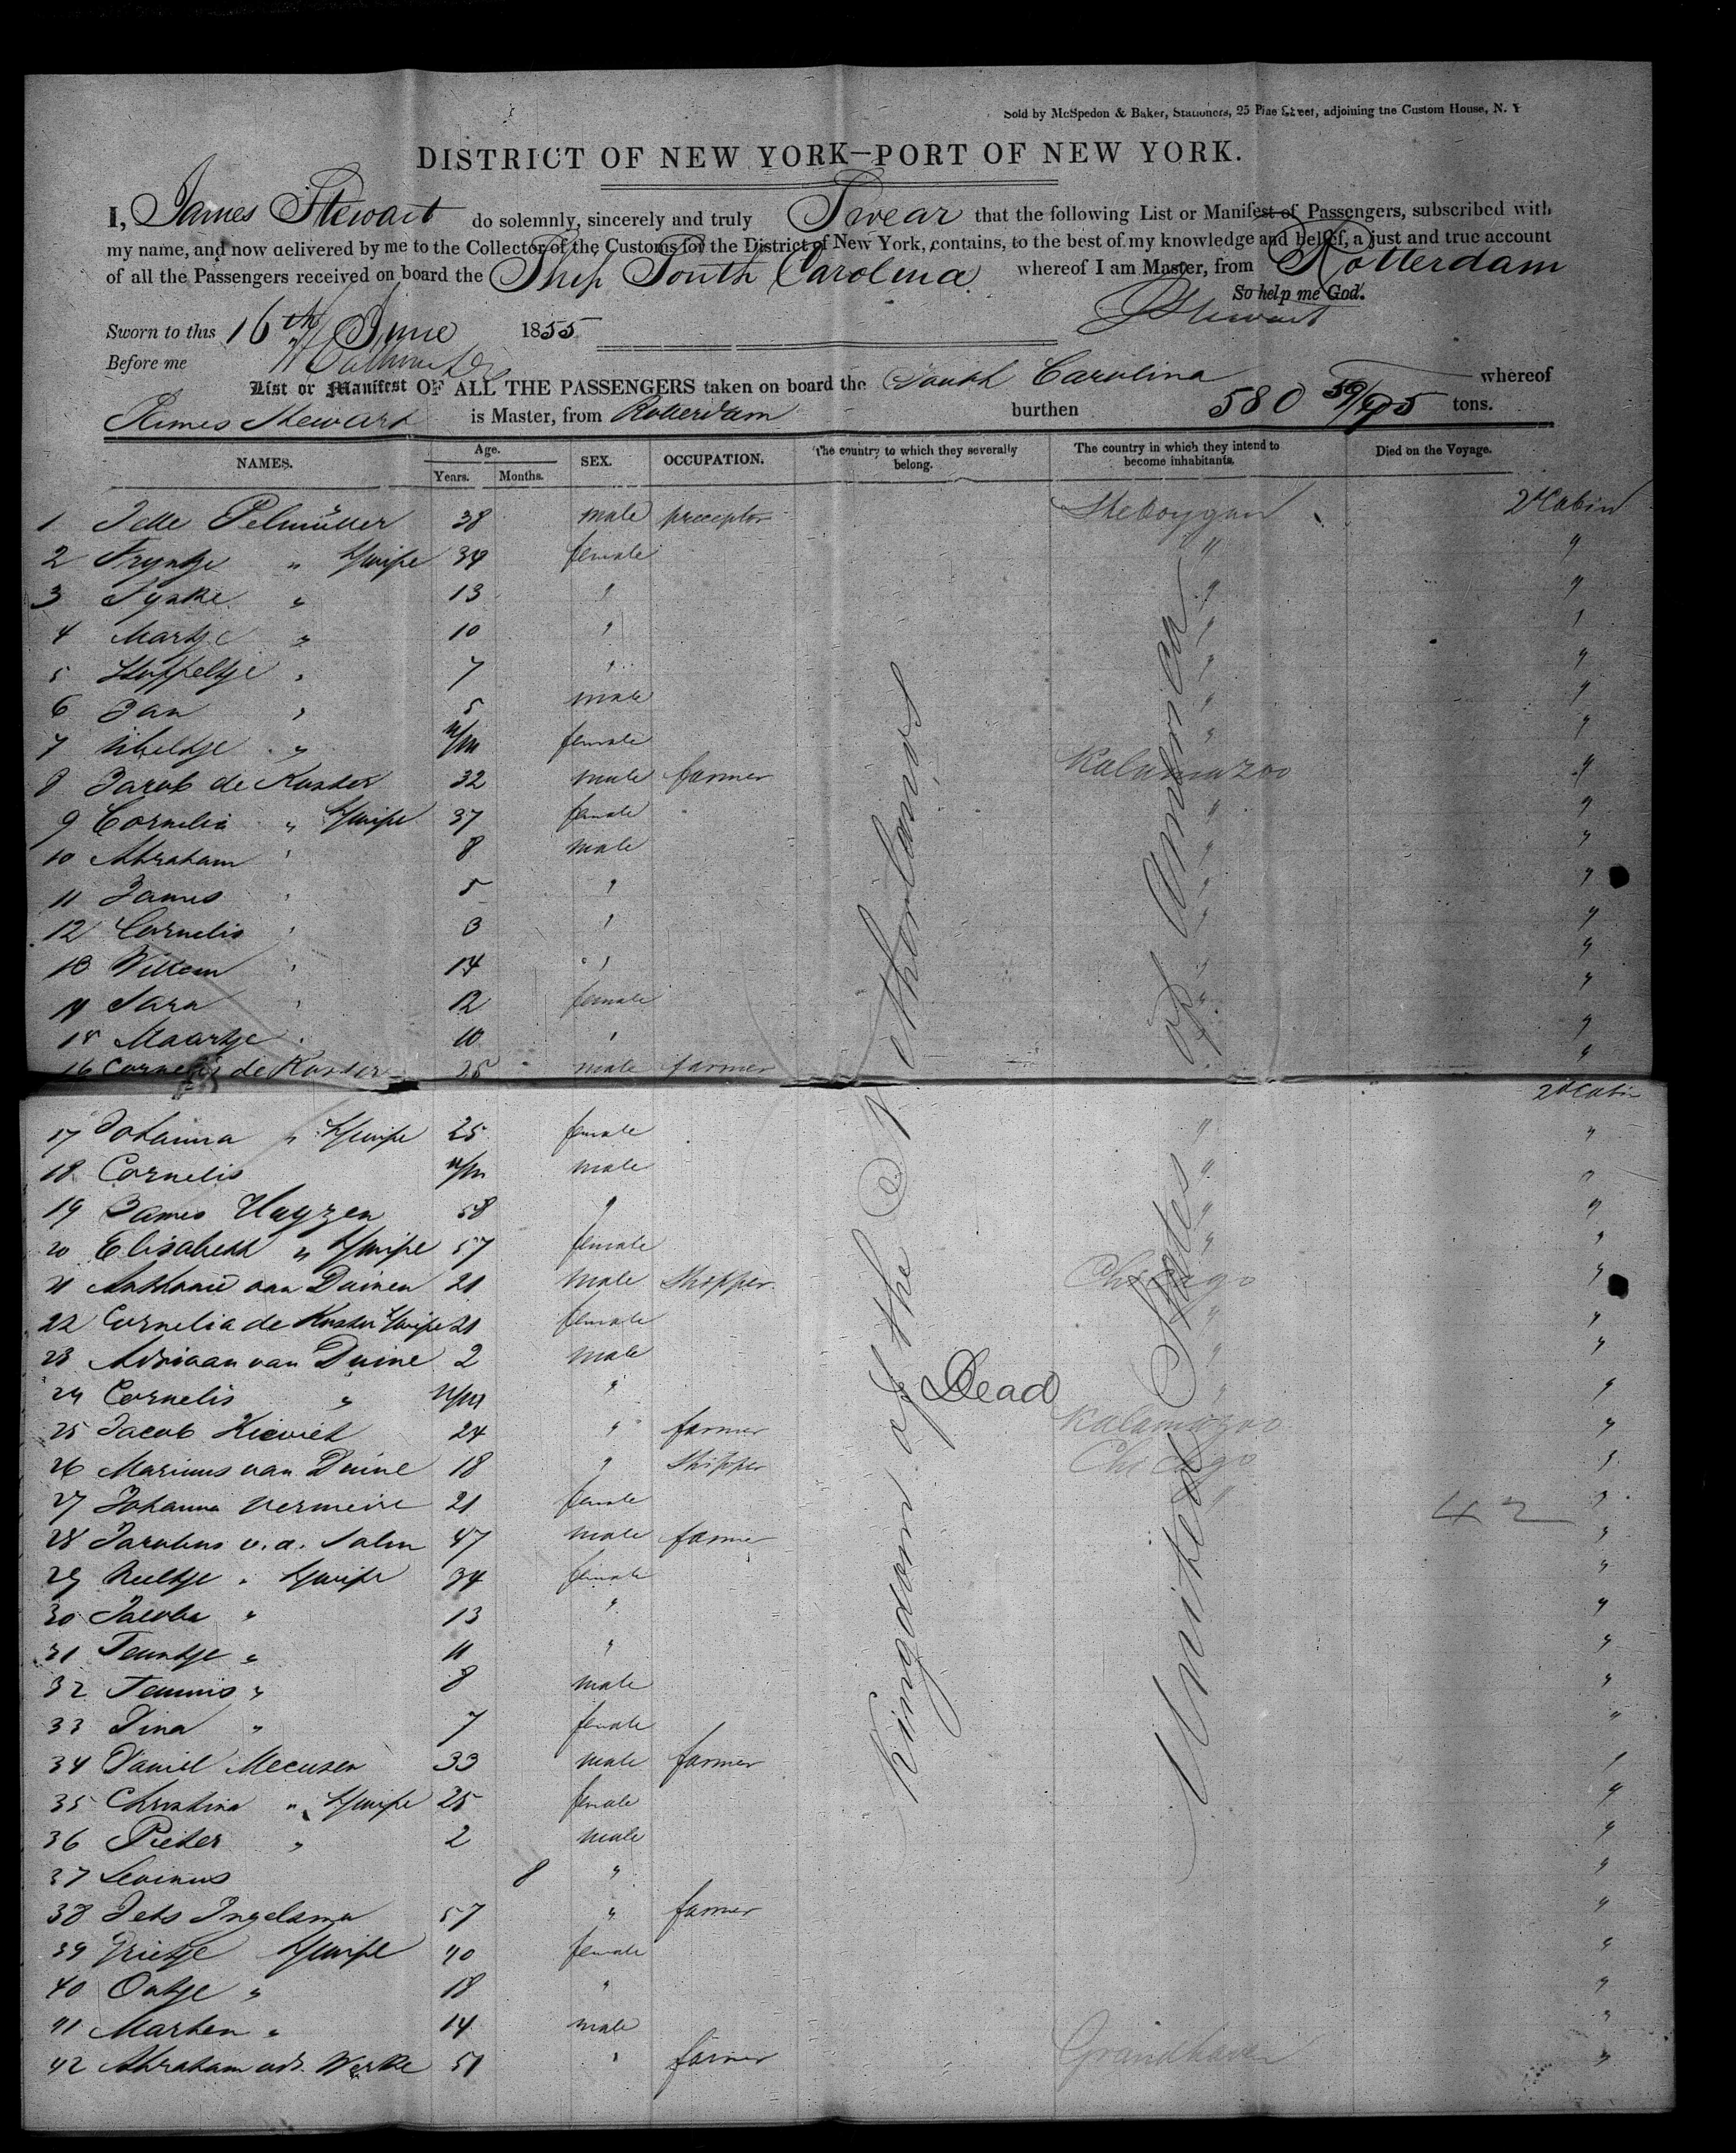 Sold by McSpedon & Baker, Stationers, 25 Pine Street, adjoining the Custom House, N. Y
DISTRICT OF NEW YORK—PORT OF NEW YORK.
I, James Stewart do solemnly, sincerely and truly Swear that the following List or Manifest of Passengers, subscribed with
my name, and now delivered by me to the Collector of the Customs for the District of New York, contains, to the best of my knowledge and belief, a just and true account
of all the Passengers received on board the Ship South Carolina whereof I am Master, from Rotterdam
So help me God.
Sworn to this 16th June 1855 J Stewart
Before me
List or Manifest OF ALL THE PASSENGERS taken on board the South Carolina whereof
James Stewart is Master, from Rotterdam burthen 580 tons.
NAMES. Age. Years. Months. SEX. OCCUPATION. The country to which they severally belong. The country in which they intend to become inhabitants. Died on the Voyage.
Kingdom of the Netherlands
United States of America
1 Jelle Pelmulder 38 male preceptor Sheboygan 2d Cabin
2 Tryntje " 34 female " "
3 Tyske " 13 " " "
4 Martje " 10 " " "
5 " 7 " " "
6 Jan " 5 male " "
7 " female " "
8 Jacob de Koster 32 male farmer Kalamazoo "
9 Cornelia " 37 female " "
10 Abraham " 8 male " "
11 James " 5 " " "
12 Cornelis " 3 " " "
13 Willem " 14 " " "
14 Sara " 12 female " "
15 Maartje " 10 " "
16 Cornelis de Koster 25 male farmer "
2d Cabin
17 Johanna " 25 female " "
18 Cornelis male " "
19 James Huyzen 58 " " "
20 Elisabeth " 57 female " "
21 Anthonie van Duinen 21 male Shipper Chicago "
22 Cornelia de Koster 21 female " "
23 Adriaan van Duine 2 male " "
24 Cornelis " " Dead " "
25 Jacob Kieviet 24 " farmer Kalamazoo "
26 Marinus van Duine 18 " Shipper Chicago "
27 Johanna Vermeire 21 female " 42 "
28 Jacobus v. d. Salm 47 male farmer "
29 Neeltje " 34 female "
30 Jacoba " 13 " "
31 Teuntje " 11 " "
32 Teunnis " 8 male "
33 Dina " 7 female "
34 Daniel Meeusen 33 male farmer "
35 Christina " 25 female "
36 Pieter " 2 male "
37 Levinus 8 " "
38 Jets Ingelsma 57 " farmer "
39 Grietje 40 female "
40 Ontje " 18 " "
41 Marten " 14 male "
42 Abraham 51 " farmer Grandhaven "